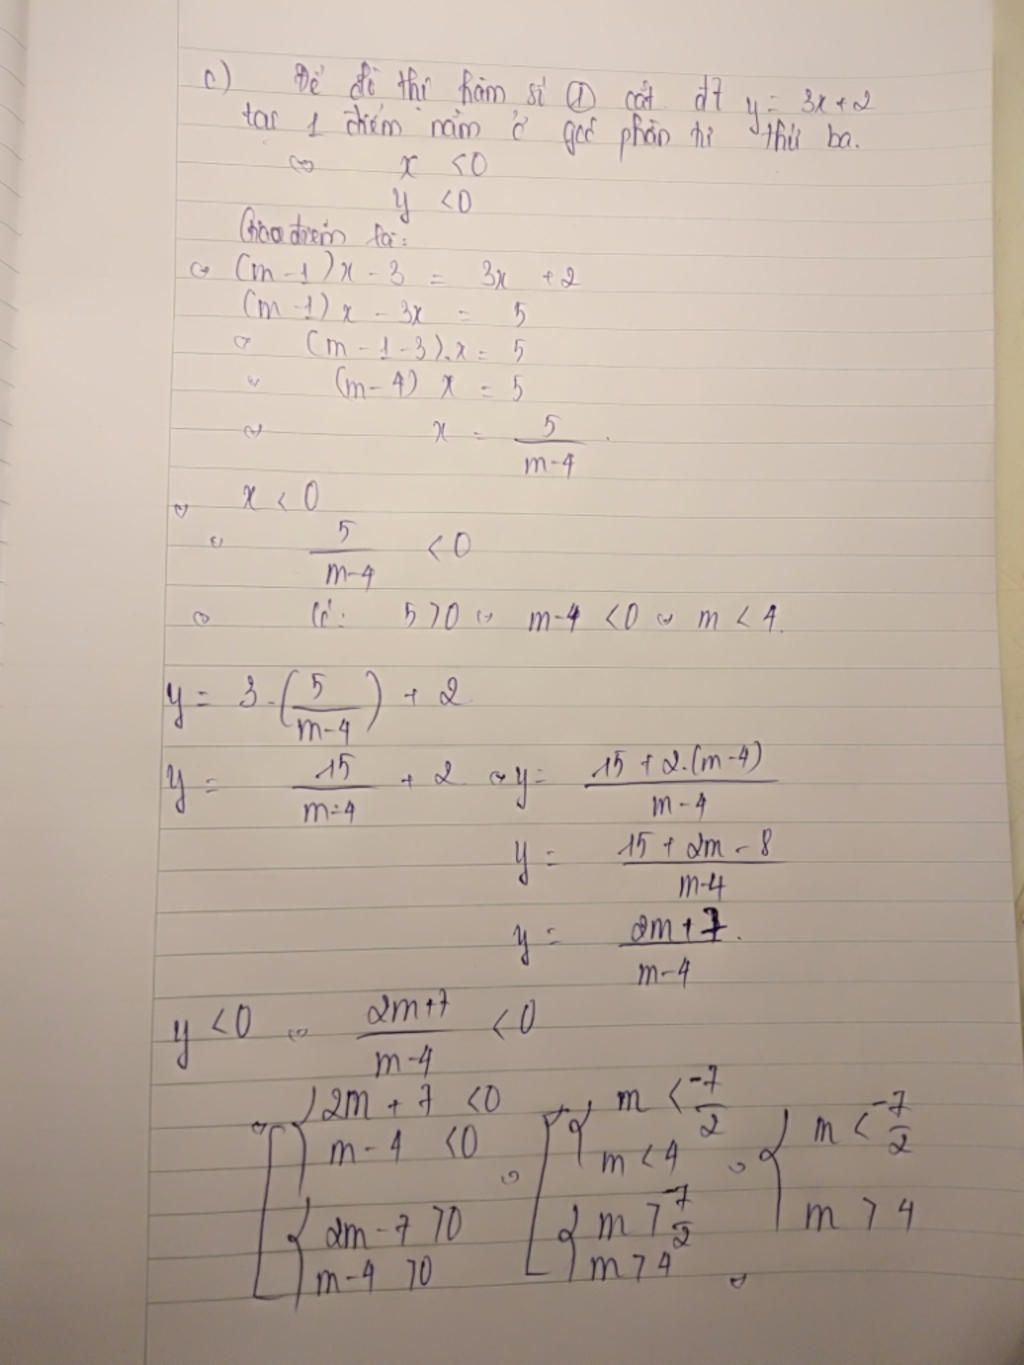 c) Để đồ thị hàm số ① cắt đt y = 3x+2
tại 1 điểm nằm ở góc phần tư thứ ba.
⇔ x < 0
y < 0
Giao điểm là:
⇔ (m-1)x - 3 = 3x + 2
(m-1)x - 3x = 5
⇔ (m-1-3).x = 5
⇔ (m-4) x = 5
⇔ x = 5/(m-4).
⇔ x < 0
⇔ 5/(m-4) < 0
⇔ Có: 5 > 0 ⇔ m-4 < 0 ⇔ m < 4.
y = 3.(5/(m-4)) + 2
y = 15/(m-4) + 2 ⇔ y = (15 + 2.(m-4))/(m-4)
y = (15 + 2m - 8)/(m-4)
y = (2m+7)/(m-4).
y < 0 ⇔ (2m+7)/(m-4) < 0
⇔ [ { 2m + 7 < 0 ⇔ [ { m < -7/2 ⇔ { m < -7/2
m - 4 < 0 m < 4 m > 4
{ 2m - 7 > 0 { m > -7/2
m - 4 > 0 m > 4 ⇔